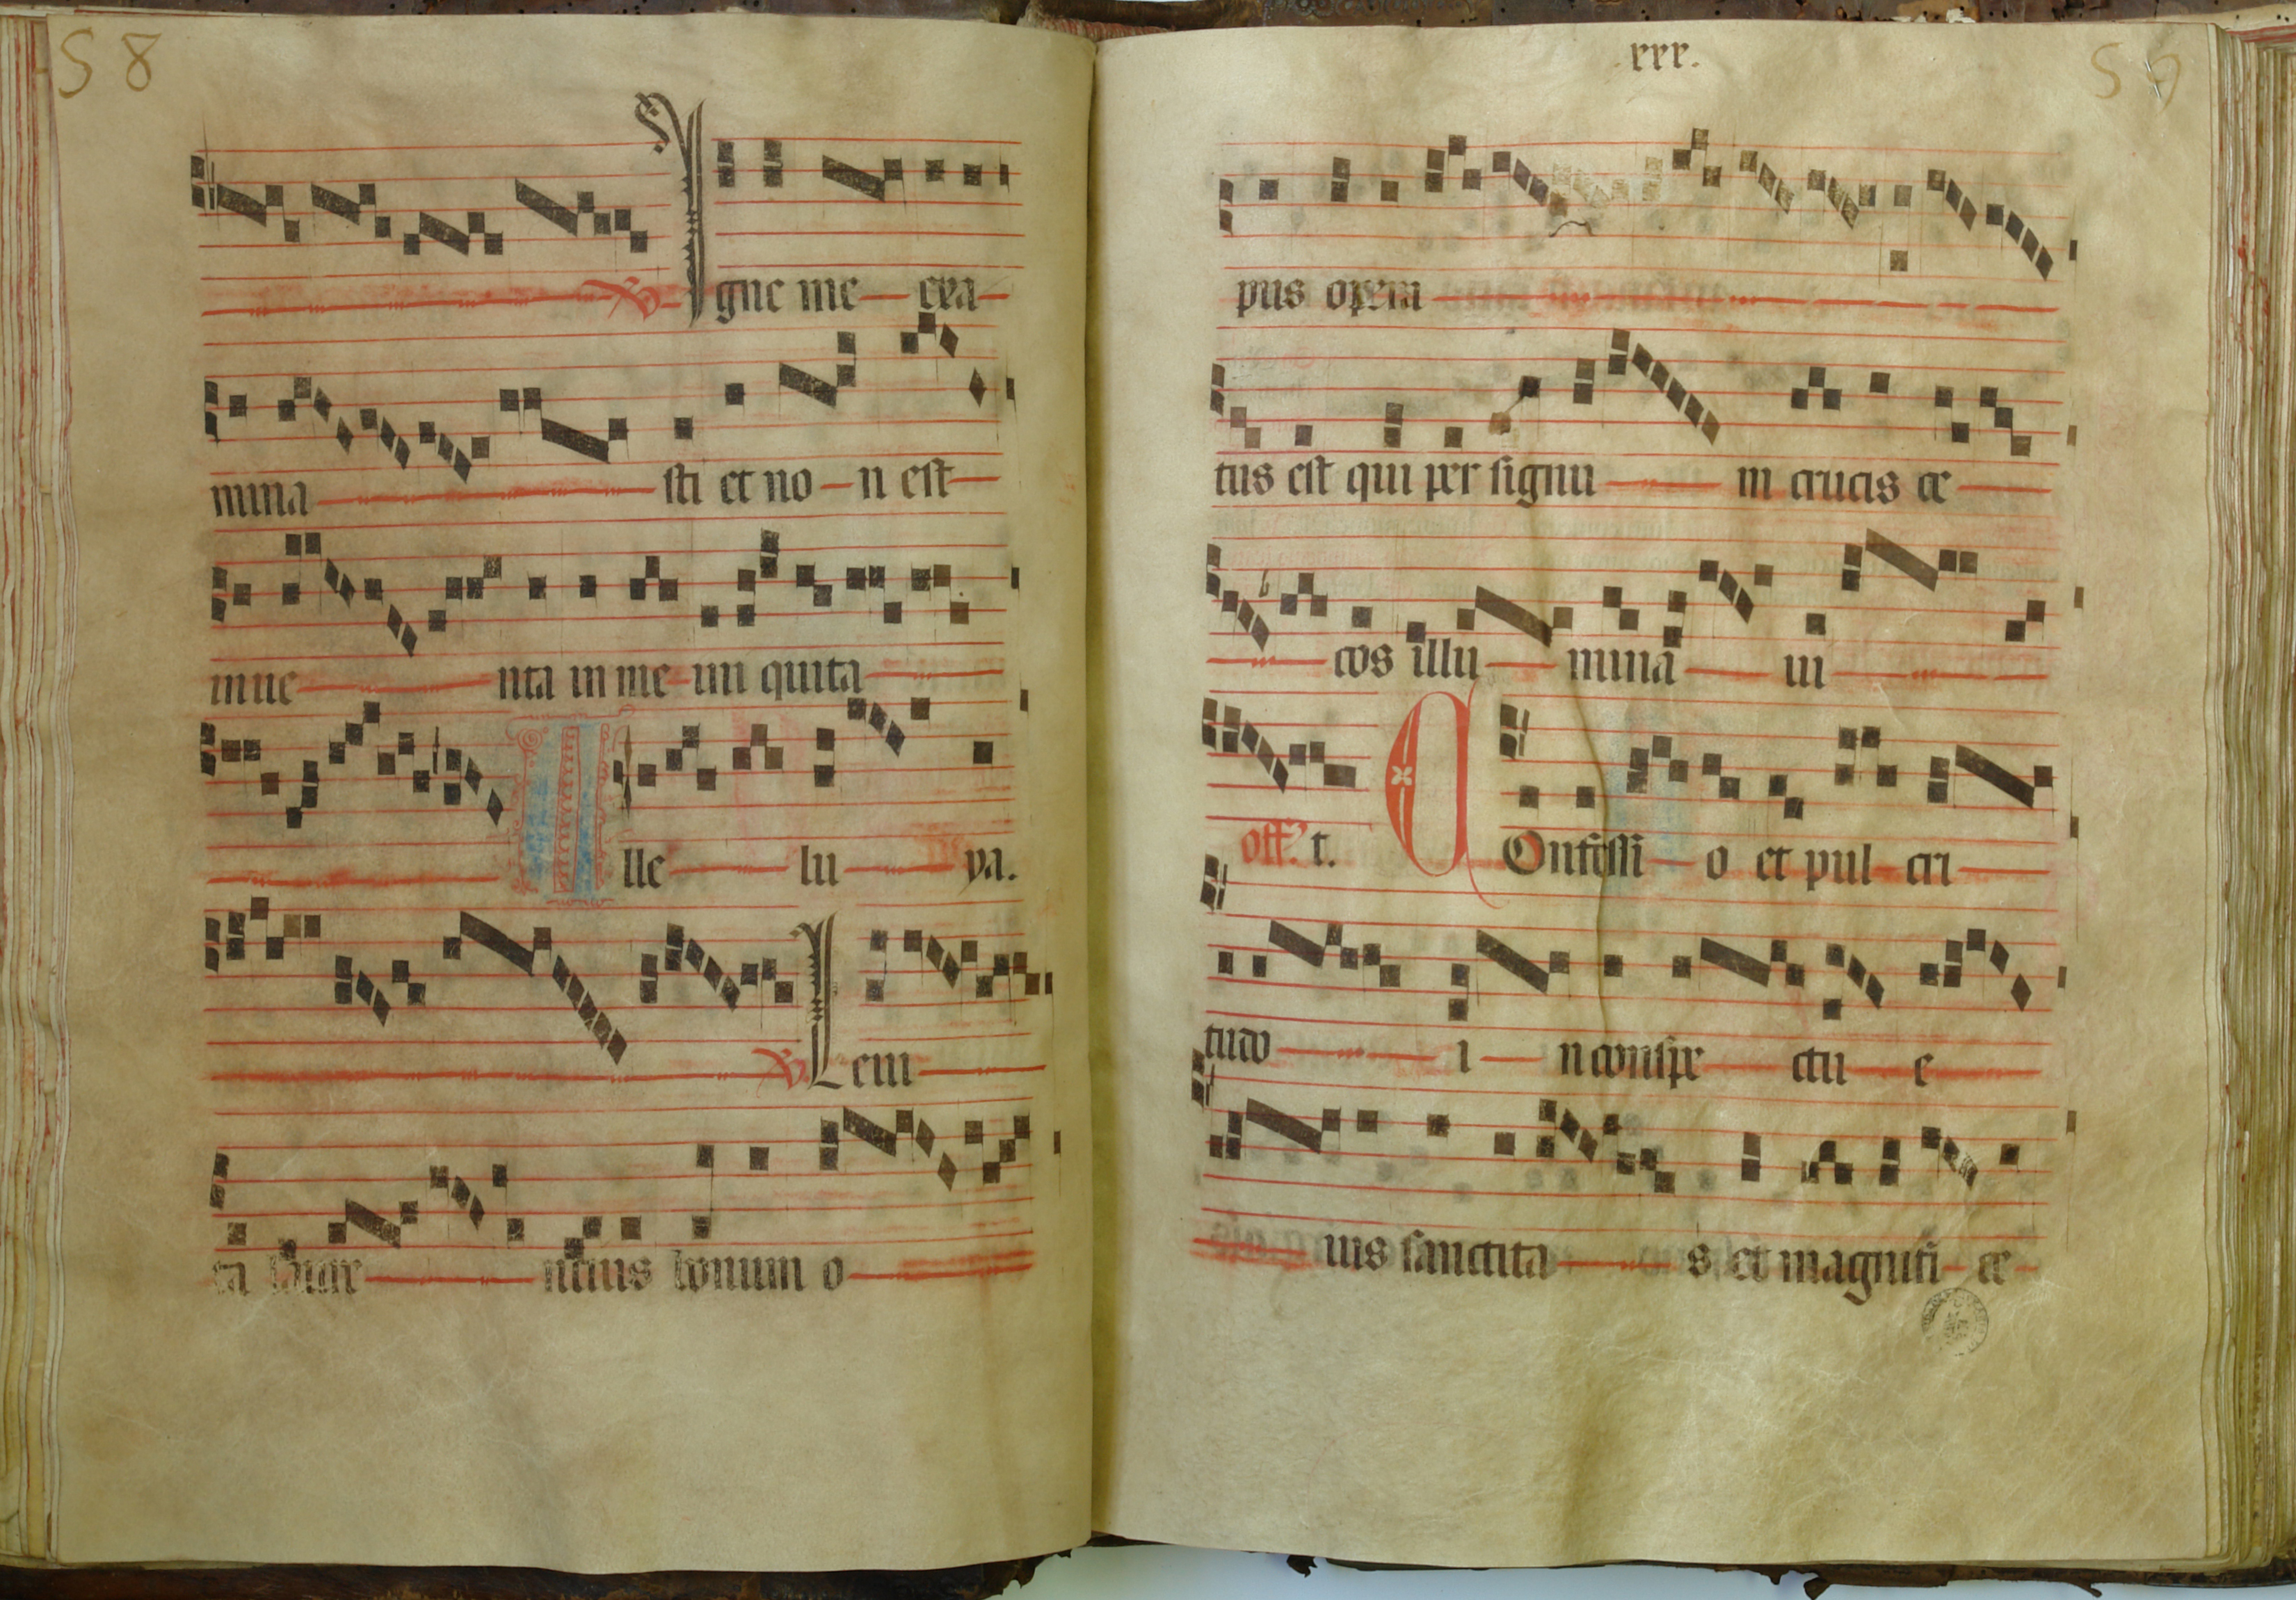 58
℣ Igne me exa
mina sti et no n est
inue nta in me ini quita
Alle lu ya.
℣ Leui
ta laure ntius bonum o
xxx.
59
pus opera
tus est qui per signu m crucis ce
cos illu mina ui
t. off. COnfessi o et pul cri
tudo i n conspe ctu e
ius sanctita s et magnifi ce